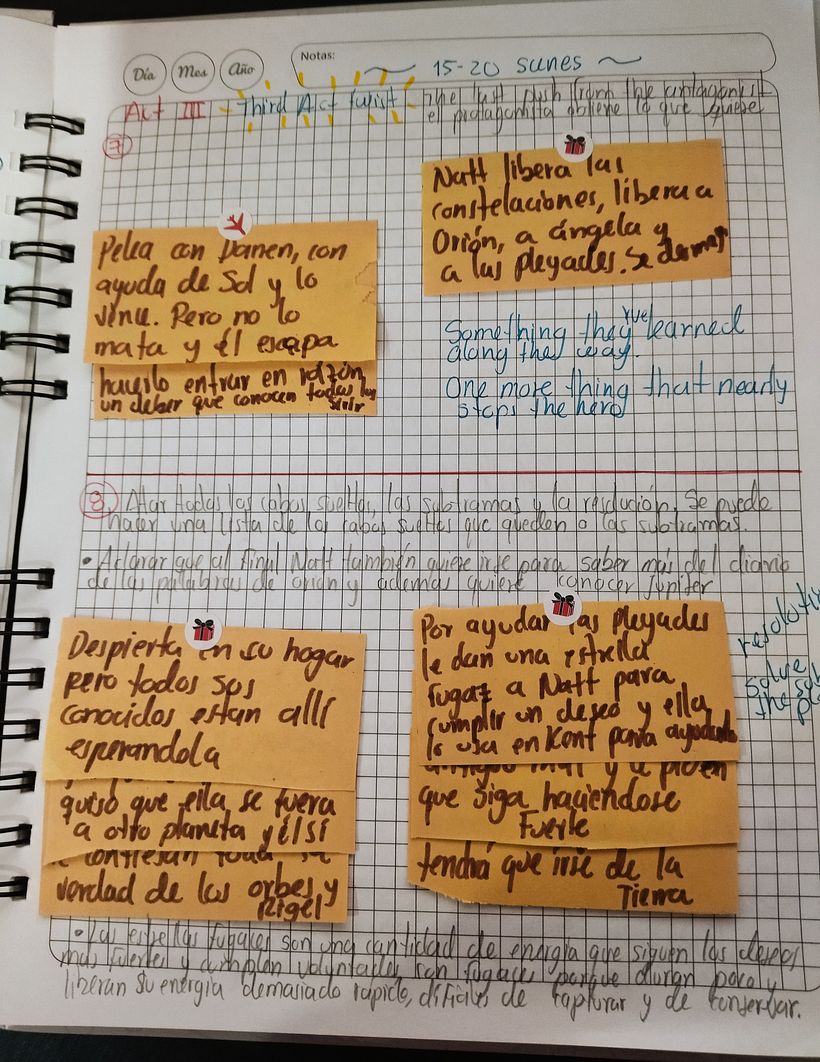 Día
Mes
Año
Notas:
~ 15-20 scenes ~
Act III - Third Act Twist - The last push from the antagonist
el protagonista obtiene lo que quiere
7
Natt libera las
constelaciones, libera a
Orión, a ángela y
a las pleyades. Se
Pelea con Damen, con
ayuda de Sol y lo
vence. Pero no lo
mata y él escapa
hacerlo entrar en razón,
un deber que conocen todas las
Something they've learned
along the way.
One more thing that nearly
stops the hero
8. Atar todas los cabos sueltos, las subtramas y la resolución. Se puede
hacer una lista de los cabos sueltos que queden o las subtramas.
• Aclarar que al final Natt también quiere irse para saber más del diario
de las palabras de orion y además quiere conocer Jupiter
Despierta en su hogar
pero todos sus
conocidos estan allí
esperandola
quiso que ella se fuera
a otro planeta y él sí
verdad de los orbes y
Rigel
Por ayudar las pleyades
le dan una estrella
fugaz a Natt para
cumplir un deseo y ella
lo usa en Kent para
que siga haciendose
Fuerte
tendrá que irse de la
Tierra
solve
• Las estrellas fugaces son una cantidad de energía que siguen los deseos
más fuertes y cumplen voluntades, son fugaces porque duran poco y
liberan su energía demasiado rápido, difíciles de capturar y de conservar.